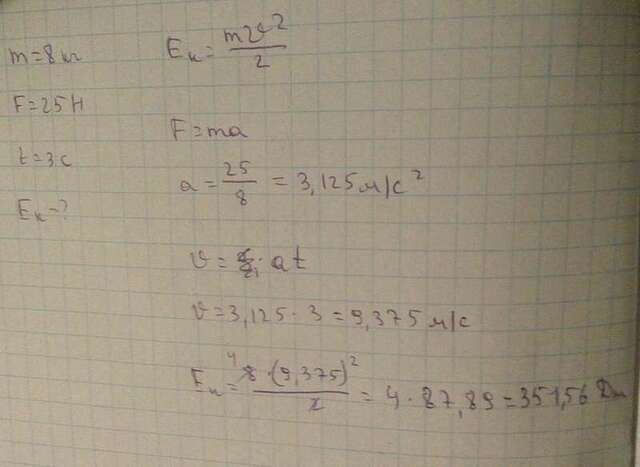 m=8 кг
F=25 Н
t=3 с
Eк-?
Eк = mv²/2
F=ma
a = 25/8 = 3,125 м/с²
v = at
v = 3,125 · 3 = 9,375 м/с
Eк = 8 · (9,375)²/2 = 4 · 87,89 = 351,56 Дж